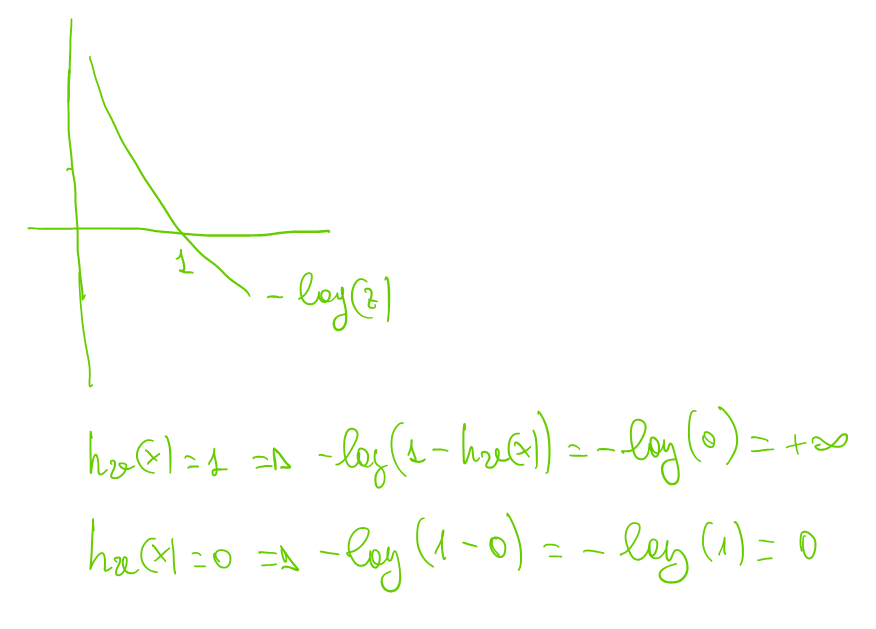 1
- log(z)
h𝜗(x) = 1 => -log(1 - h𝜗(x)) = -log(0) = +∞
h𝜗(x) = 0 => -log(1 - 0) = - log(1) = 0